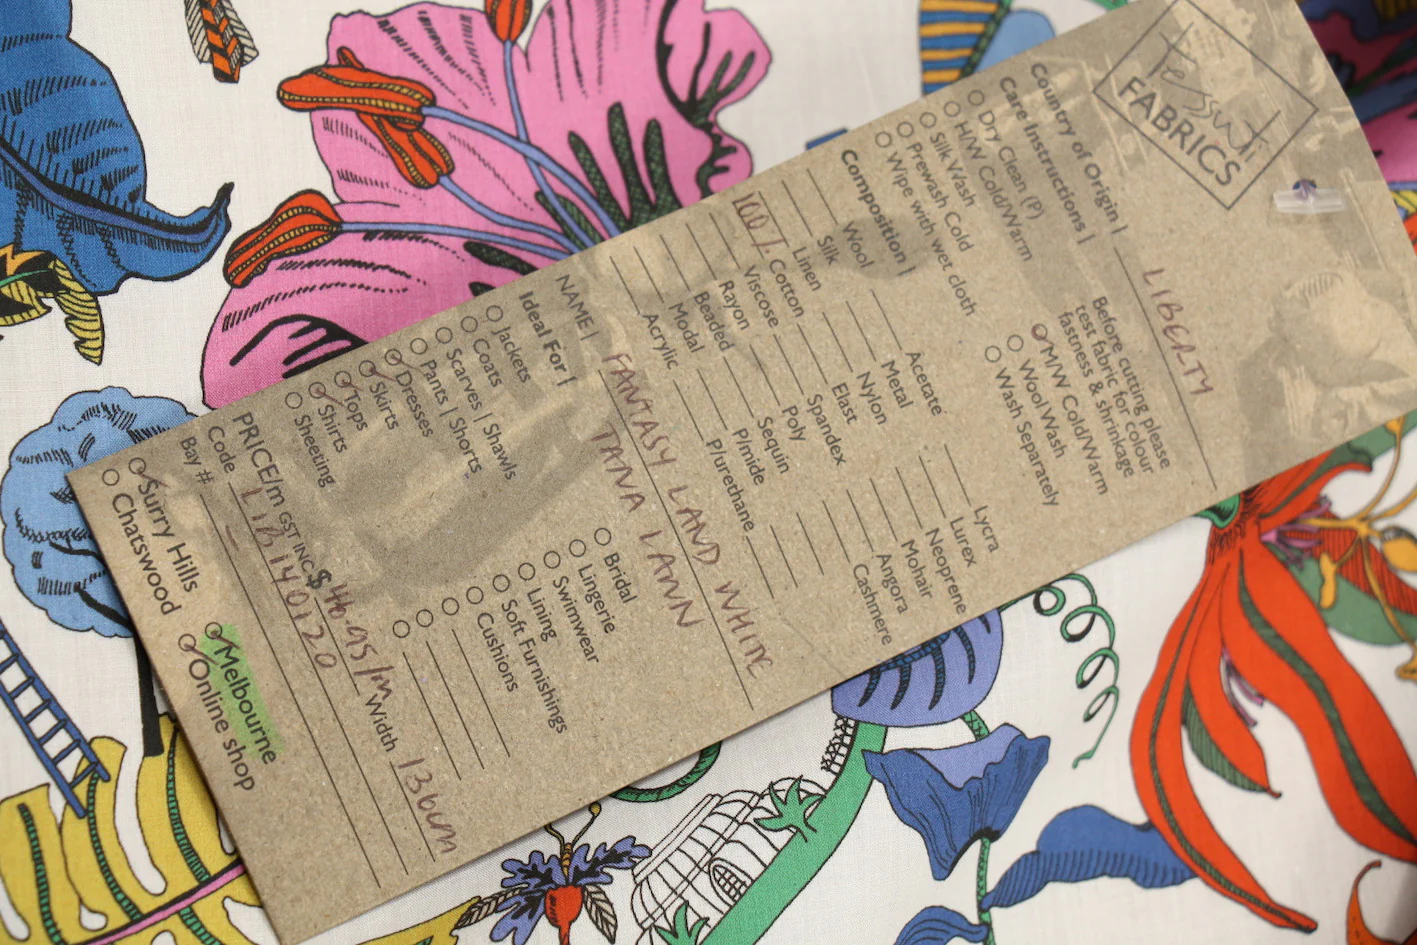 Tessuti
FABRICS
Country of Origin | LIBERTY
Care Instructions |
Dry Clean (P)
H/W Cold/Warm
Silk Wash
Prewash Cold
Wipe with wet cloth
Before cutting please
test fabric for colour
fastness & shrinkage
M/W Cold/Warm
Wool Wash
Wash Separately
Composition |
Wool
Silk
Linen
100% Cotton
Viscose
Rayon
Beaded
Modal
Acrylic
Acetate
Metal
Nylon
Elast
Spandex
Poly
Sequin
P/mide
P/urethane
Lycra
Lurex
Neoprene
Mohair
Angora
Cashmere
NAME | FANTASY LAND WHITE
TANA LAWN
Ideal For |
Jackets
Coats
Scarves | Shawls
Pants | Shorts
Dresses
Skirts
Tops
Shirts
Sheeting
Bridal
Lingerie
Swimwear
Lining
Soft Furnishings
Cushions
PRICE/m GST INC $ 46.95/m Width 136cm
Code LIB1140120
Bay #
Surry Hills
Chatswood
Melbourne
Online shop